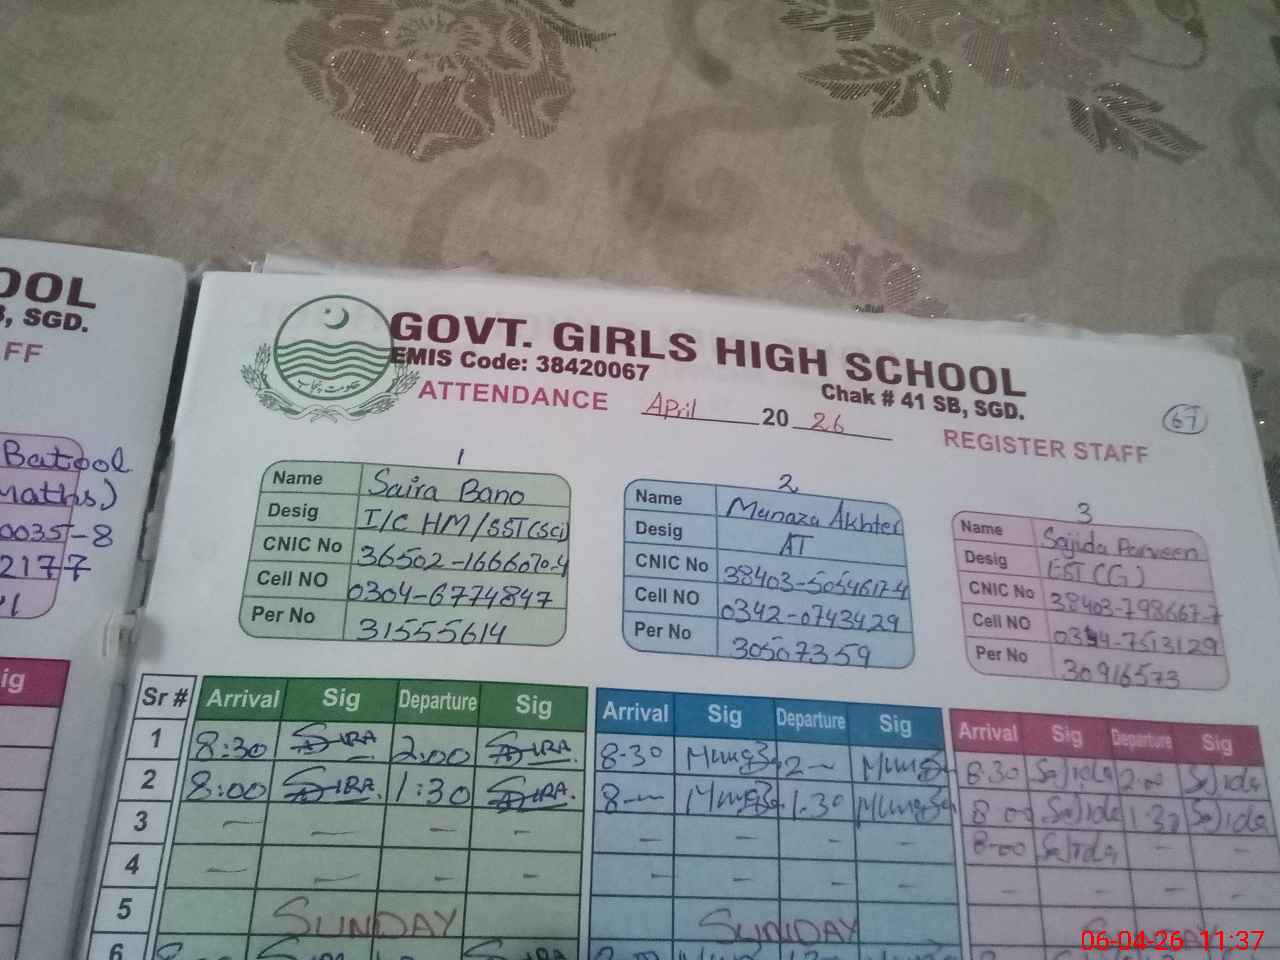 OOL
B, SGD.
FF
Batool
Maths)
0035-8
2177
ig
حکومت پنجاب
GOVT. GIRLS HIGH SCHOOL
EMIS Code: 38420067
Chak # 41 SB, SGD.
ATTENDANCE April 20 26
REGISTER STAFF
67
1
Name Saira Bano
Desig I/C HM/SST(Sci)
CNIC No 36502-1666070-4
Cell NO 0304-6774847
Per No 31555614
2
Name Munaza Akhter
Desig AT
CNIC No 38403-5054617-4
Cell NO 0342-0743429
Per No 30507359
3
Name Sajida Parveen
Desig EST(G)
CNIC No 38403-798667-7
Cell NO 0344-7513129
Per No 30916573
Sr # Arrival Sig Departure Sig Arrival Sig Departure Sig Arrival Sig Departure Sig
1 8:30 SIRA 2:00 SIRA 8-30 2 - 8.30 Sajida 2:00 Sajida
2 8:00 SIRA 1:30 SIRA 8 - 1.30 8 00 Sajida 1:30 Sajida
3 - - - - - - - - 8-00 Sajida - -
4 - - - - - - - - - - - -
5 SUNDAY SUNDAY
6
06-04-26 11:37